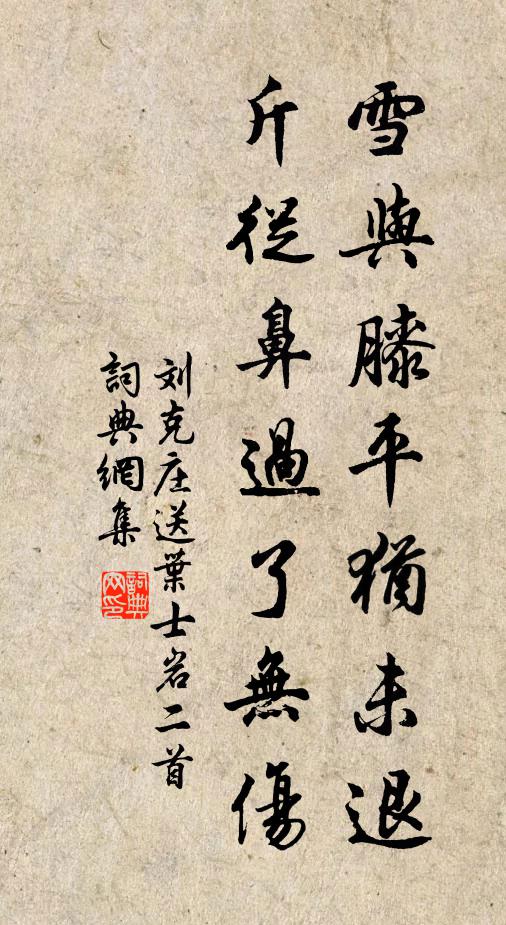 雪與膝平猶未退
斤從鼻過了無傷
刘克庄送葉士岩二首
詞典網集
詞典
网印